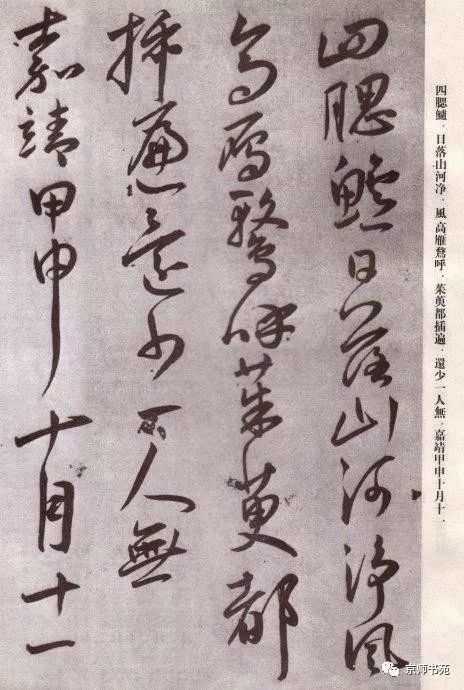 四腮鱸·日落山河净·風高雁鶩呼·茱萸都插遍·還少一人無·嘉靖甲申十月十一
四腮鱸日落山河净風
高雁鶩呼茱萸都
插遍還少一人無
嘉靖甲申十月十一
京师书苑